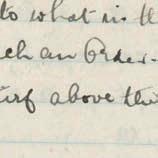 to what is th
ch an Order.
urf above the